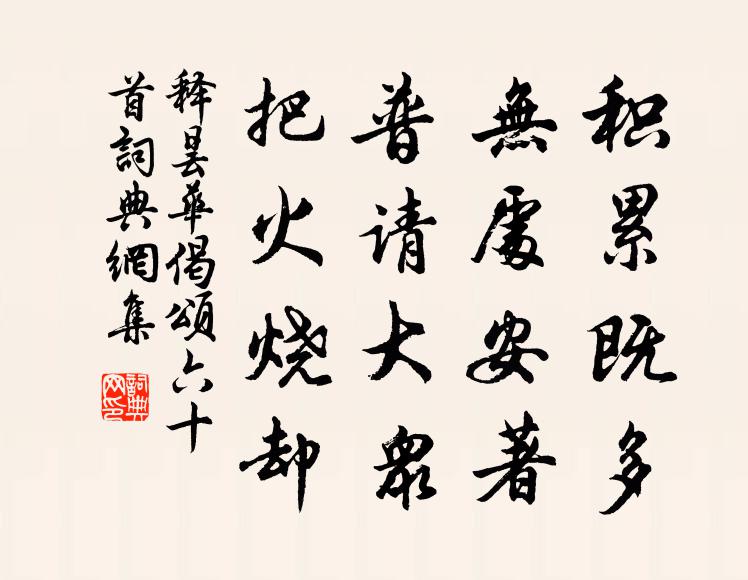 积累既多
無處安著
普请大眾
把火烧却
释昙華偈頌六十
首詞典網集
詞典
网印